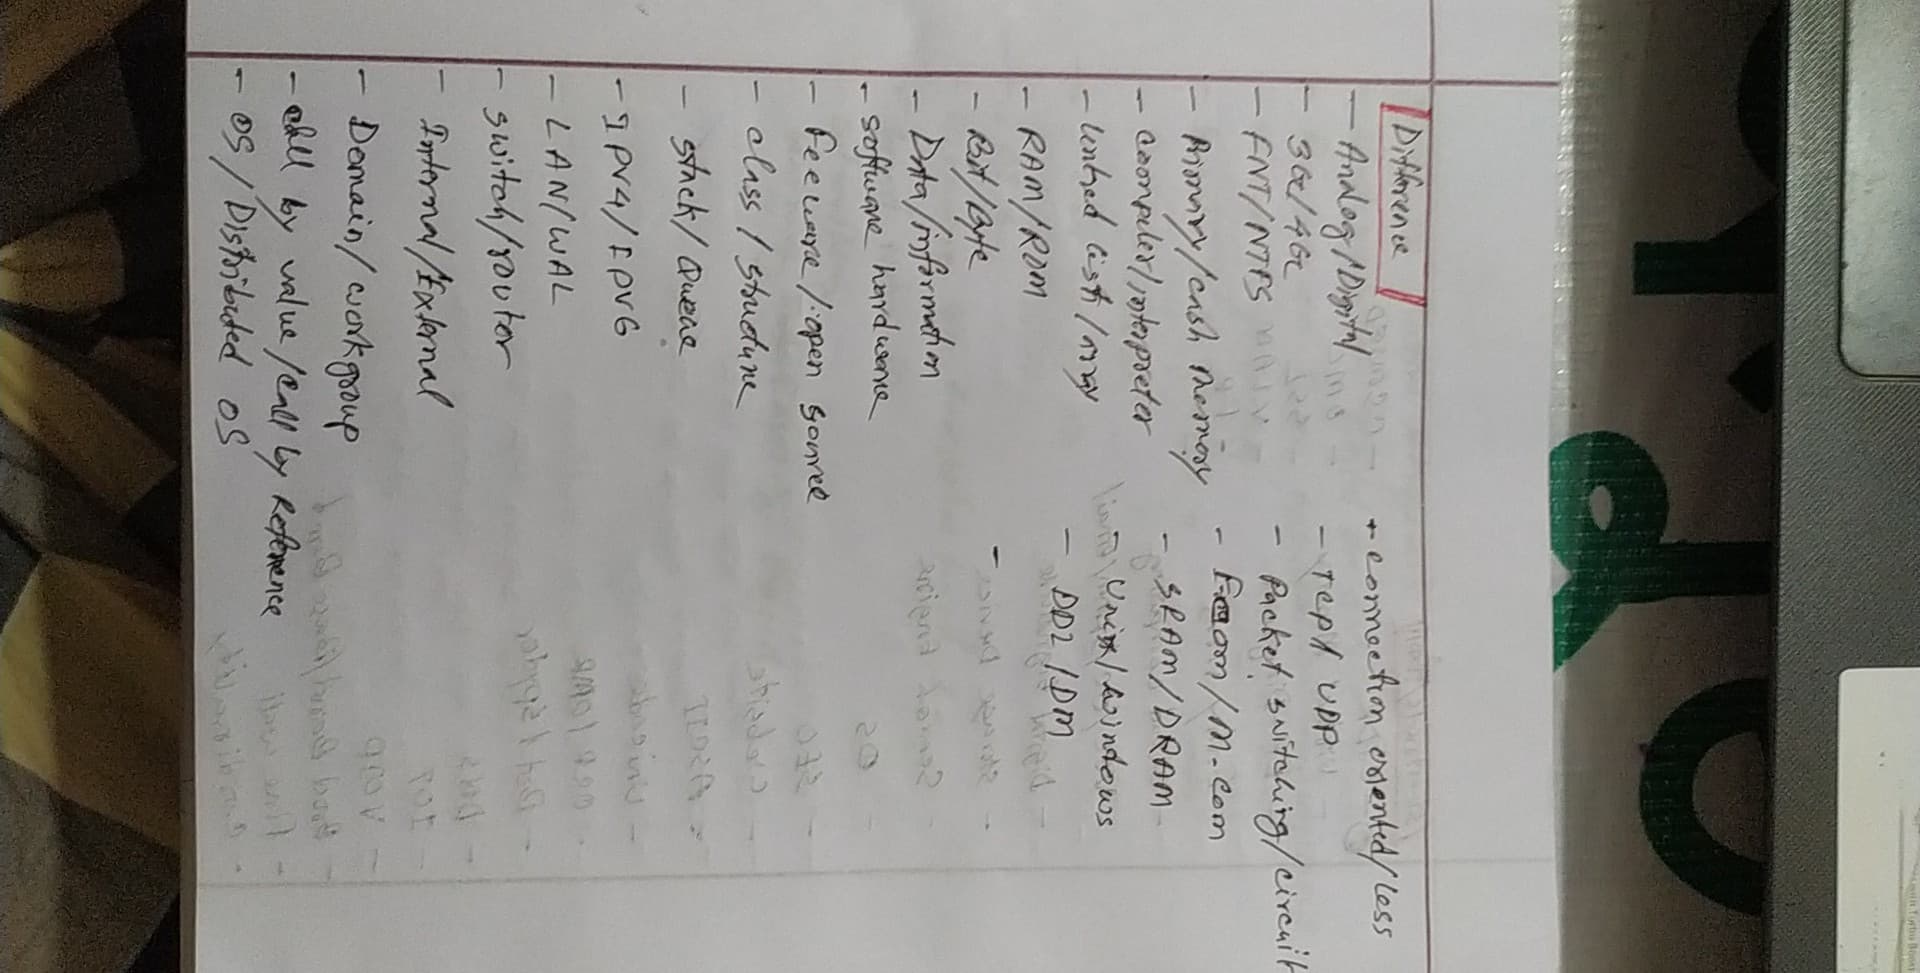 Difference
- Analog/Digital
- 3G/4G
- FNT/NTFS
- Primary/cash memory
- compuler/interpreter
- linked list/array
- RAM/ROM
- Bit/Byte
- Data/information
- software hardware
- feeware/open source
- class/structure
- stack/Queue
- IPV4/IPV6
- LAN/WAL
- switch/router
- Internal/External
- Domain/workgroup
- call by value/call by Reference
- OS/Distributed OS
- connection oriented/less
- TCP/UDP
- Packet switching/circuit
- /M-com
- SRAM/DRAM
- Unix/windows
- DD2/DM